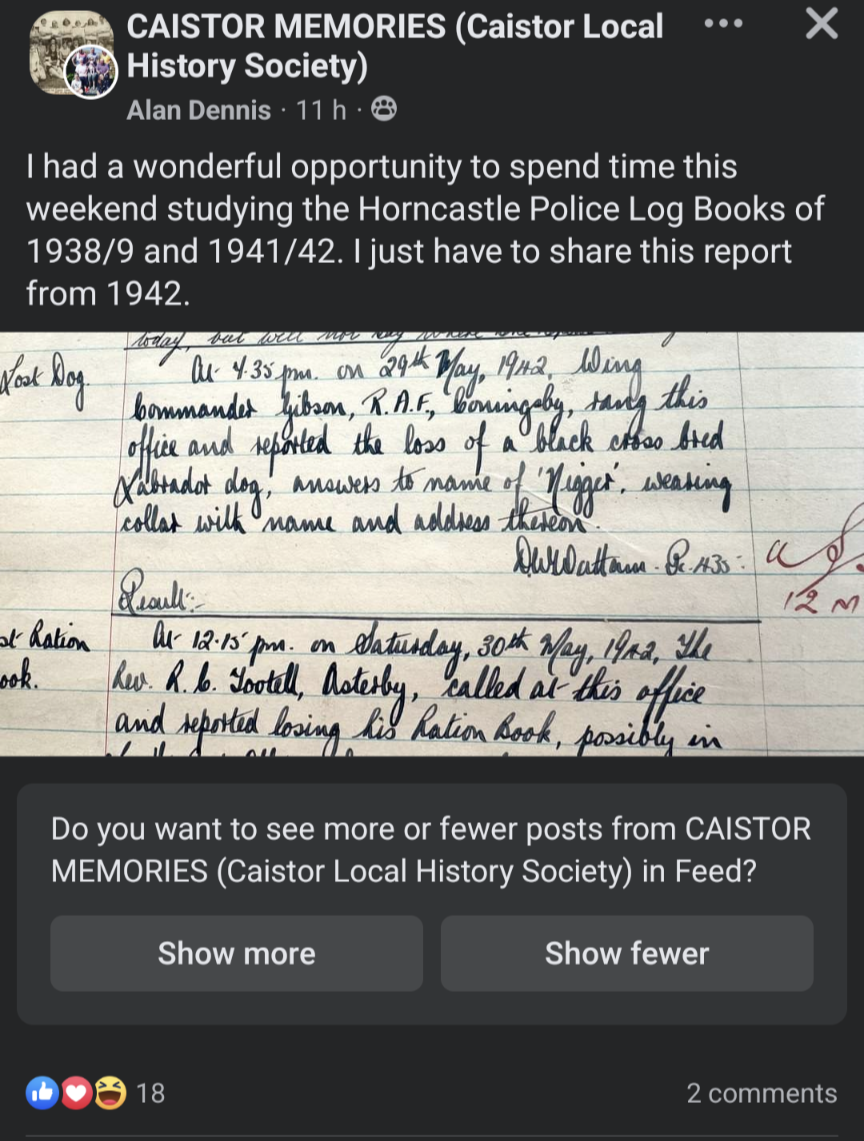 CAISTOR MEMORIES (Caistor Local
History Society)
Alan Dennis · 11 h ·
I had a wonderful opportunity to spend time this
weekend studying the Horncastle Police Log Books of
1938/9 and 1941/42. I just have to share this report
from 1942.
today, but will not say where
Lost Dog.
At 4.35 pm. on 29th May, 1942, Wing
Commander Gibson, R.A.F., Coningsby, rang this
office and reported the loss of a black cross bred
Labrador dog, answers to name of 'Nigger', wearing
collar with name and address thereon.
Pc. 435:
12 M
Result:-
st Ration
ook.
At 12.15 pm. on Saturday, 30th May, 1942, The
Rev. R. C. Tootell, Asterby, called at this office
and reported losing his Ration Book, possibly in
Do you want to see more or fewer posts from CAISTOR
MEMORIES (Caistor Local History Society) in Feed?
Show more
Show fewer
18
2 comments